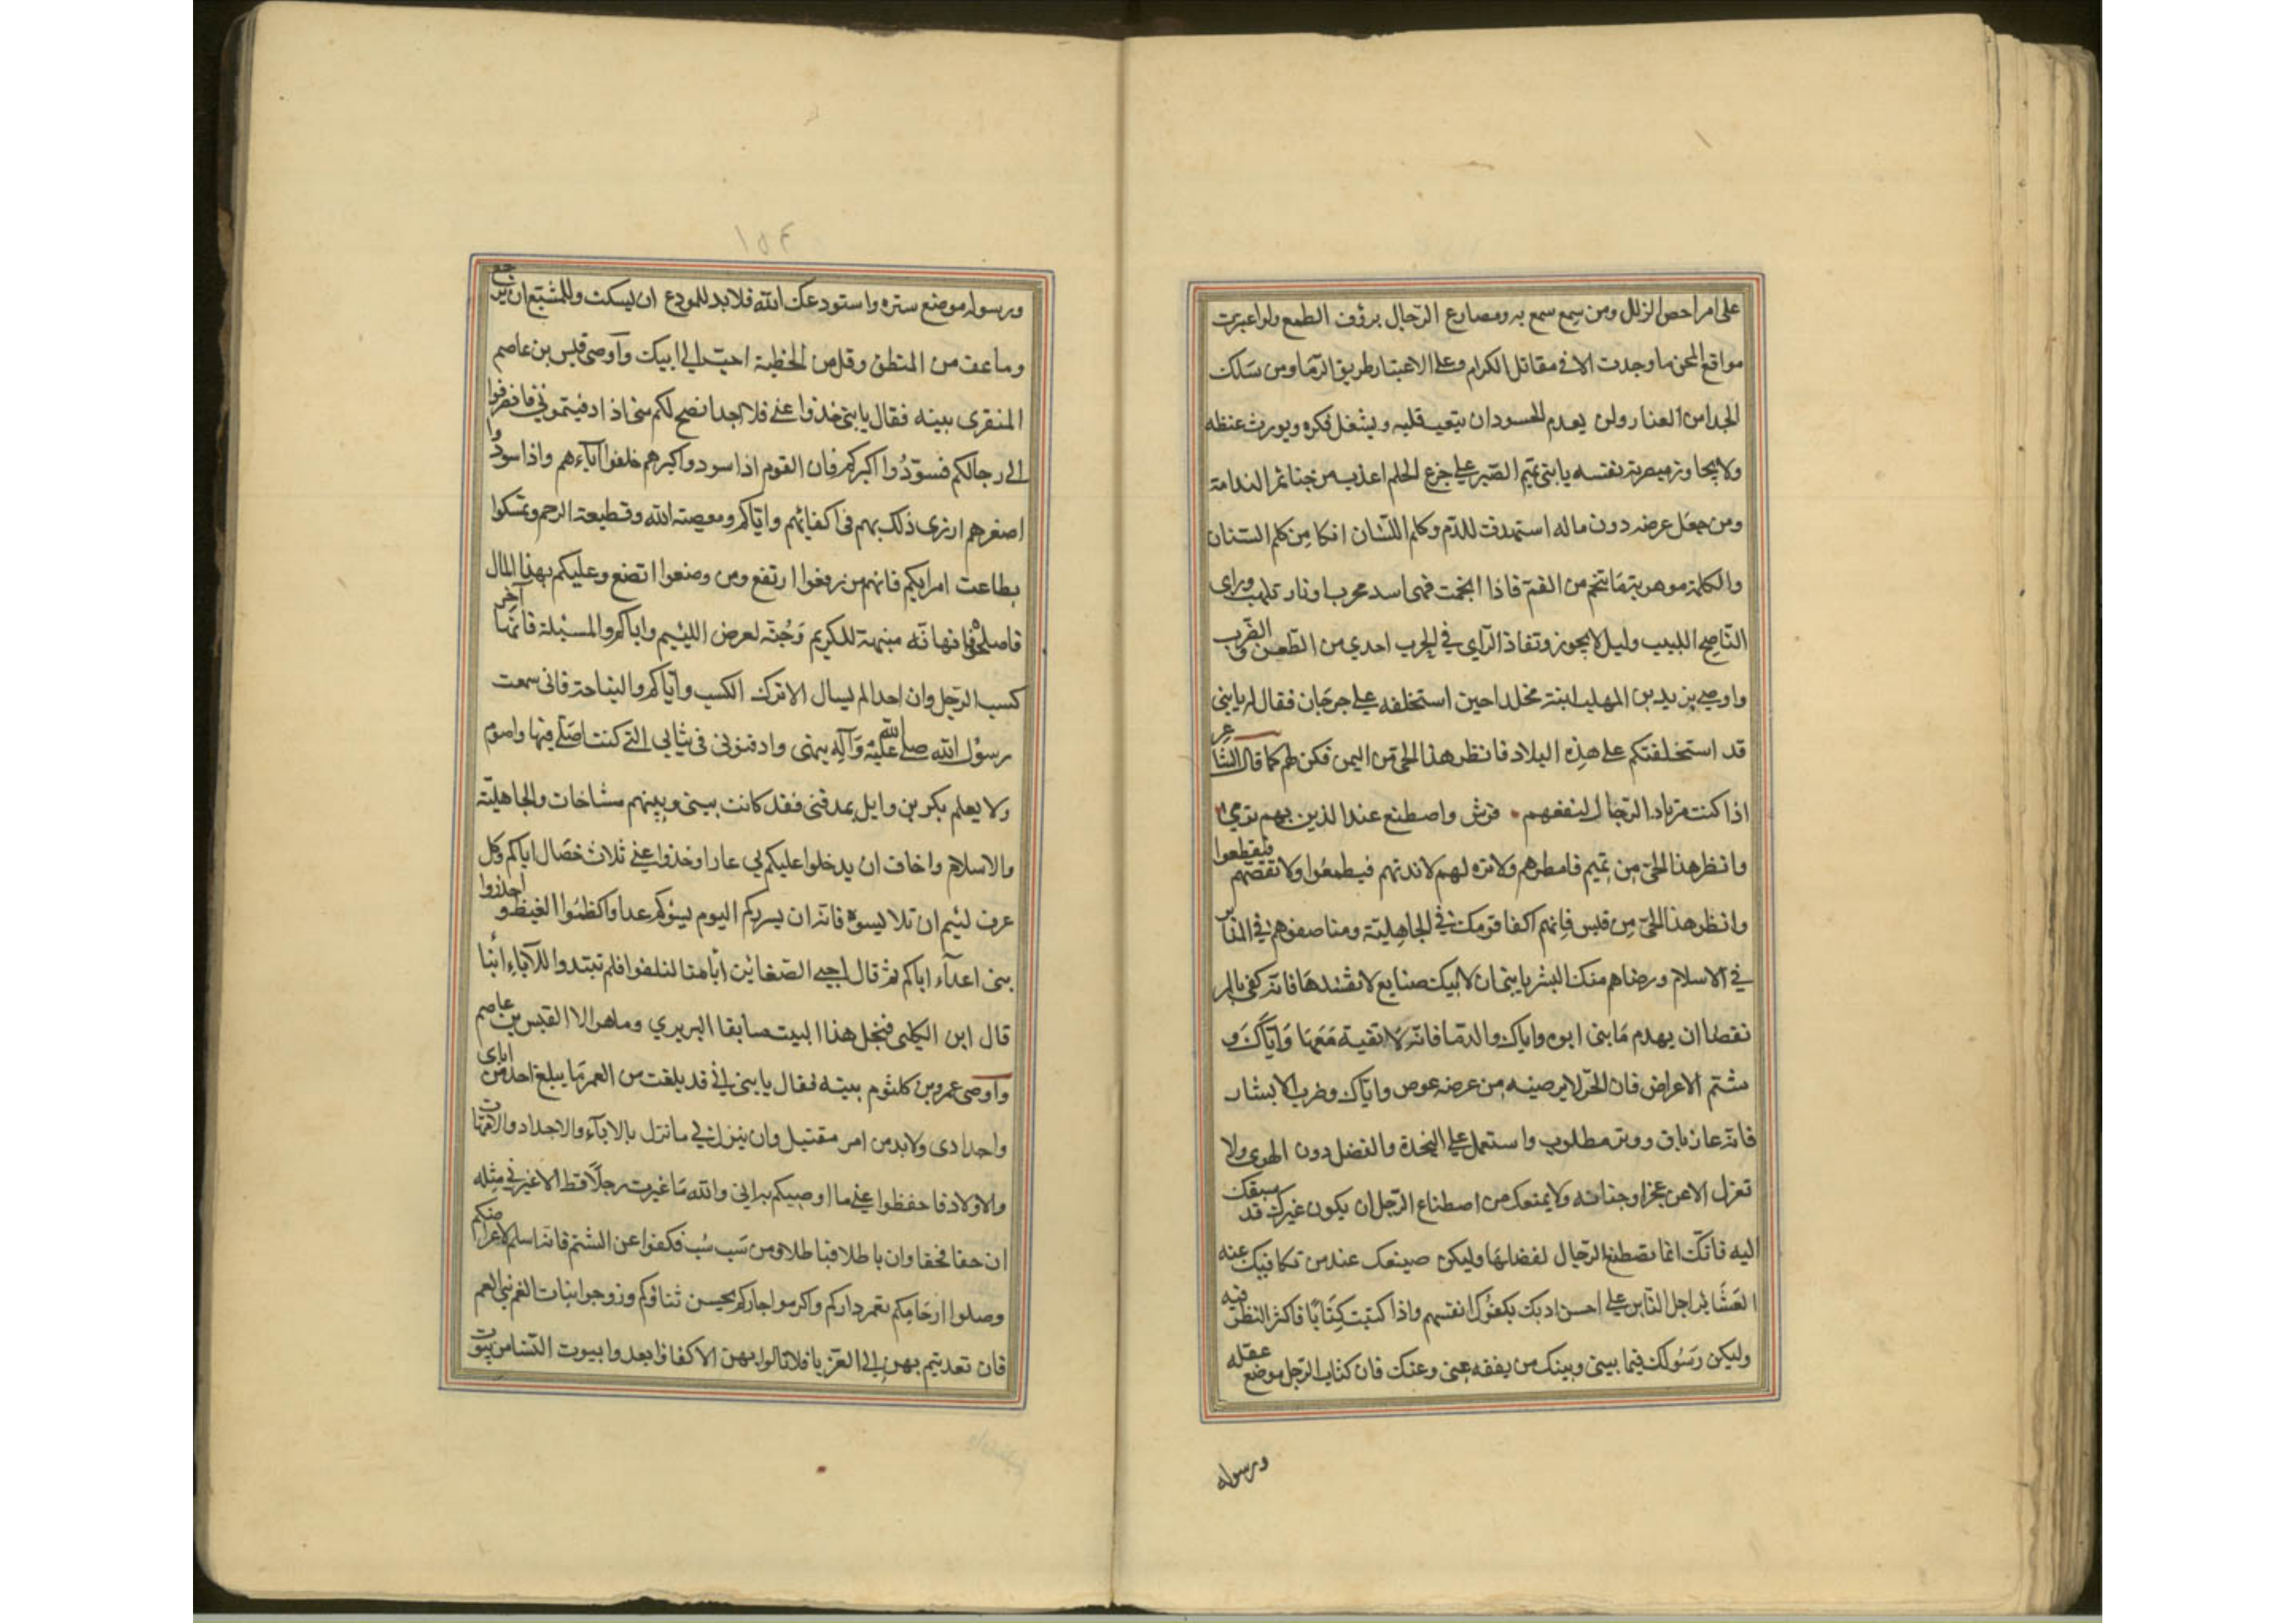 على امراحض الزلل ومن سمع سمع به ومصارع الرجال بروق الطمع ولو اعبرت
مواقع المحن ما وجدت الا في مقاتل الكرام وعلى الاعتبار طريق الرشاد ومن سلك
الجدا من العثار ولن يعدم الحسود ان يتعب قلبه ويشغل فكره ويورث غيظه
ولا يجاوز مضرته نفسه يا بني تميم الصبر على جرع الحلم اعذب من جنا ثمر الندامة
ومن جعل عرضه دون ماله استهدف للذم وكلم اللسان انكا من كلم السنان
والكلمة مرهونة ما تنجم من الفم فاذا انجمت فهي اسد محرب او نار تلهب وراي
الناصح اللبيب دليل لا يجوز ونفاذ الراي في الحرب اجدي من الطعن والضرب
واوصى يزيد بن المهلب ابنه مخلدا حين استخلفه على جرجان فقال له يا بني
قد استخلفتكم على هذه البلاد فانظر هذا الحي من اليمن فكن لهم كما قال الشاعر
اذا كنت مرتاد الرجال لنفعهم فرش واصطنع عند الذين بهم ترمي
وانظر هذا الحي من تميم فامطرهم ولا تزه لهم لا تدنهم فيطمعوا ولا تقصهم فيقطعوا
وانظر هذا الحي من قيس فانهم اكفا قومك في الجاهلية ومناصفوهم في المنابر
في الاسلام ورضاهم منك البشر يا بني ان لابيك صنايع لا تفسدها فانه كفى بالمر
نقصا ان يهدم ما بنى ابوه واياك والدما فانه لا تقية معها واياك و
شتم الاعراض فان الحر لا يرضيه من عرضه عوض واياك وضرب الابشار
فانه عار باق ووتر مطلوب واستعمل على النجدة والفضل دون الهوى ولا
تعزل الا عن عجز او خيانة ولا يمنعك من اصطناع الرجل ان يكون غيرك قد سبقك
اليه فانك انما تصطنع الرجال لفضلها وليكن صنيعك عند من تكافيك عنه
العشاير احمل الناس على احسن ادبك يكفوك انفسهم واذا كتبت كتابا فاكثر النظر فيه
وليكن رسولك فيما بيني وبينك من يفقه عني وعنك فان كتاب الرجل موضع عقله
ورسوله
١٥٤
ورسوله موضع ستره واستودعك الله فلا بد للمودع ان يسكت وللمشيع ان يرجع
وما عف من المنطق وقل من الخطبة احب الى ابيك وآوصى قيس بن عاصم
المنقري بنيه فقال يا بني خذوا عني فلا احدا نصح لكم مني اذا دفنتموني فانصرفوا
الى رجالكم فسودوا اكبركم فان القوم اذا سودوا اكبرهم خلفوا آباءهم واذا سودوا
اصغرهم ازرى ذلك بهم في اكفائهم واياكم ومعصية الله وقطيعة الرحم وتمسكوا
بطاعت امرايكم فانهم من رفعوا ارتفع ومن وضعوا اتضع وعليكم بهذا المال
فاصلحوا فانها نه منبهة للكريم وجنة لعرض اللئيم واياكم والمسئلة فانها آخر
كسب الرجل وان احدا لم يسال الا ترك الكسب واياكم والنياحة فاني سمعت
رسول الله صلى الله عليه وآله ينهى وادفنوني في ثيابي التي كنت اصلي فيها واصوم
ولا يعلم بكر بن وايل بمدفني فقد كانت بيني وبينهم مشاخات والجاهلية
والاسلام واخاف ان يدخلوا عليكم بي عارا وخذوا عني ثلاث خصال اياكم وكل
عرف لئيم ان تلا بسوه فانه ان يسركم اليوم يسؤكم غدا واكظموا الغيظ واحذروا
بني اعدآء اباكم ثم قال احيى الضغاين اباهنا لنلفوا فلم تبتدوا للآباء ابنا
قال ابن الكلبي فنحل هذا البيت سابقا البربري وما هو الا القيس بن عاصم
وآوصى عمرو بن كلثوم بنيه فقال يا بني اني قد بلغت من العمر ما يبلغ احد من اباي
واجدادى ولا بد من امر مقتبل وان ينزل في ما نزل بالآباء والاجداد والامهات
والاولاد فاحفظوا عني ما اوصيكم به اني والله ما غيرت رجلا قط الا غير في مثله
ان حقا فحقا وان باطلا فباطلا ومن سب سب فكفوا عن الشتم فانه اسلم لاعراضكم
وصلوا ارحامكم تعمر داركم واكرموا جاركم يحسن ثناؤكم وزوجوا بنات العم بني العم
فان تعديتم بهن الى الغربا فلا تالوا بهن الاكفا وابعدوا بيوت النسا من بيوت